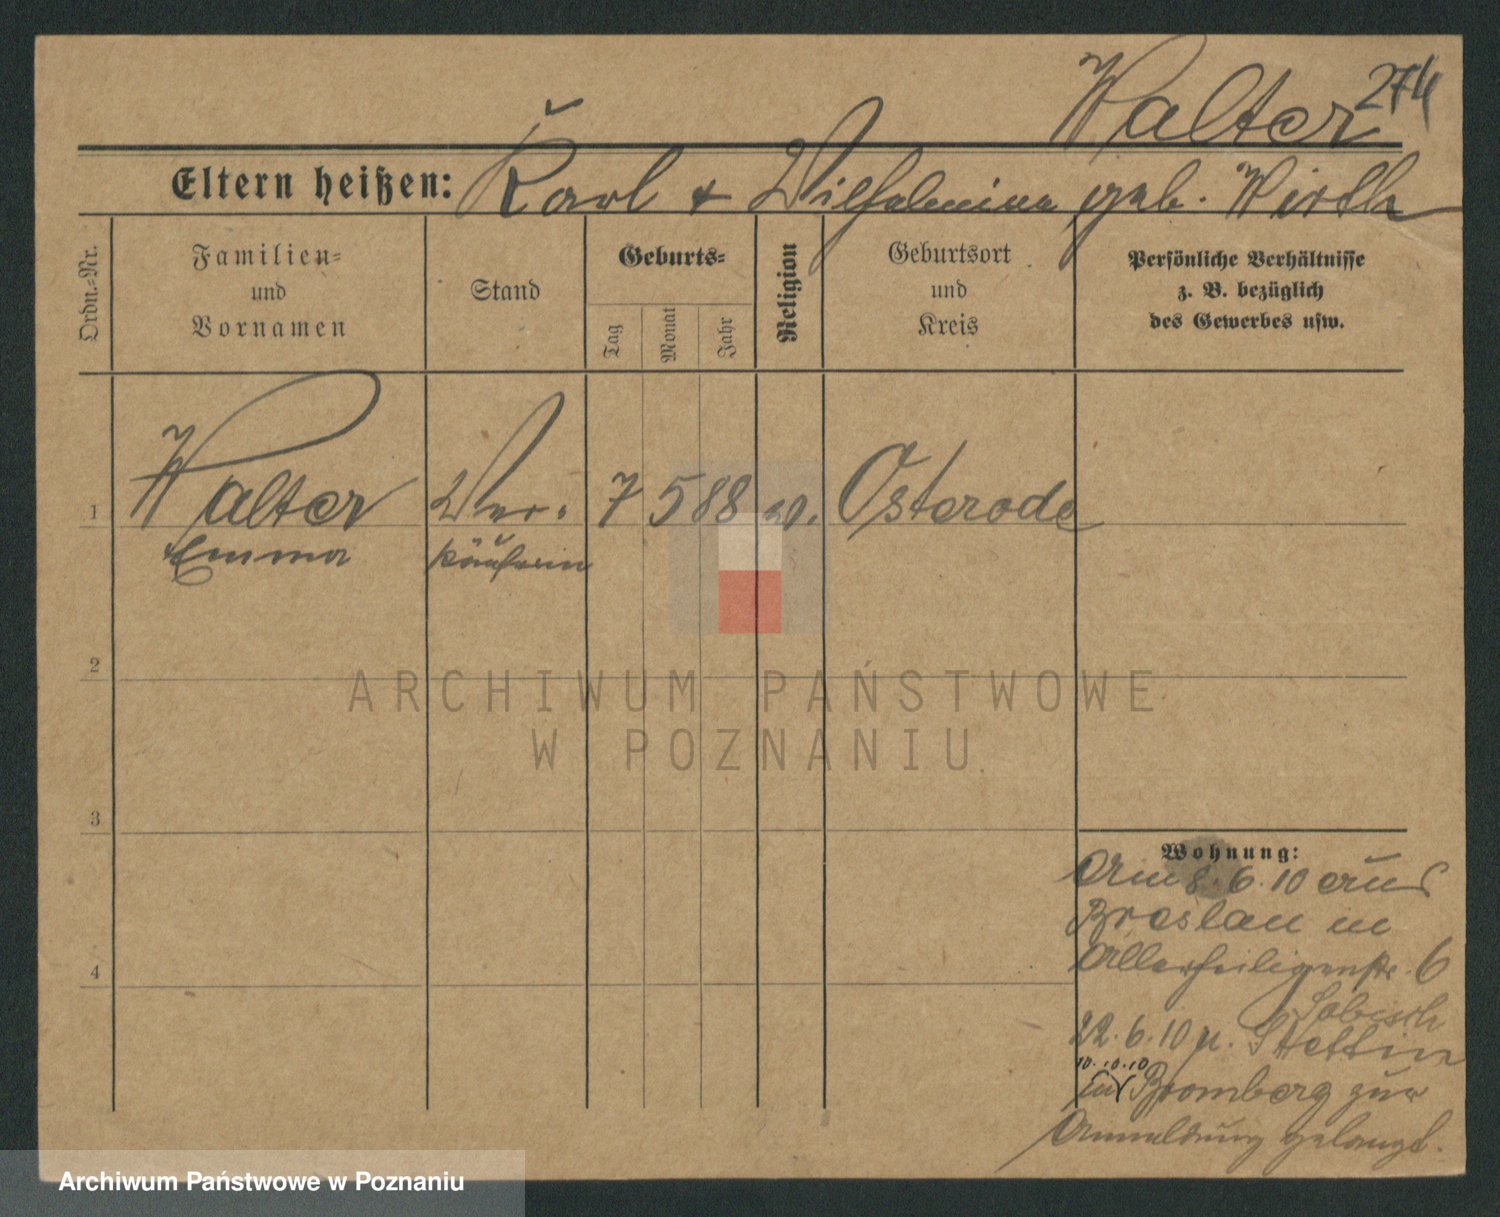 Walter 274
Eltern heißen: Karl + Wilhelmine geb. Wirth
Ordn.=Nr.
Familien=
und
Vornamen
Stand
Geburts=
Tag
Monat
Jahr
Religion
Geburtsort
und
Kreis
Persönliche Verhältnisse
z. B. bezüglich
des Gewerbes usw.
1 Walter Ver. 7 5 88 Osterode
Emma käuferin
2
3
4
Wohnung:
Am 8.6.10 aus
Breslau in
Allerheiligenstr. 6
22.6.10 n. Stettin
10.10.10
in Bromberg zur
Anmeldung gelangt.
ARCHIWUM PAŃSTWOWE
W POZNANIU
Archiwum Państwowe w Poznaniu